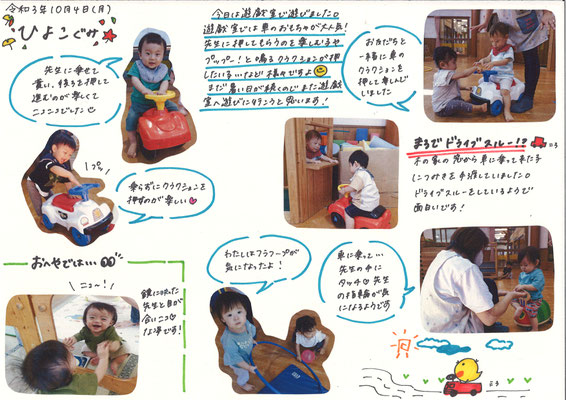 令和3年10月4日(月)
ひよこぐみ
今日は遊戯室で遊びました。
遊戯室では車のおもちゃが大人気!
先生に押してもらうのを楽しむ子や
プップー!と鳴るクラクションが押
したい子…など様々ですよ
まだ暑い日が続くので、また遊戯
室へ遊びに行こうと思います!
先生に乗せて
貰い、後ろを押して
進むのが楽しくて
ニコニコでした
お友だちと
一緒に車の
クラクションを
押して楽しんで
いました
プップッ
乗らずにクラクションを
押すのが楽しい
まるでドライブスルー!?
木の家の窓から車に乗って来た子
につみきを手渡していました。
ドライブスルーをしているようで
面白いです!
おへやでは…
ニュー!
鏡に映った
先生と目が
合いニコッ
な子です!
わたしはフラフープが
気になったよ!
車に乗って…
先生の手に
タッチ 先生
の指輪が気
になるようです